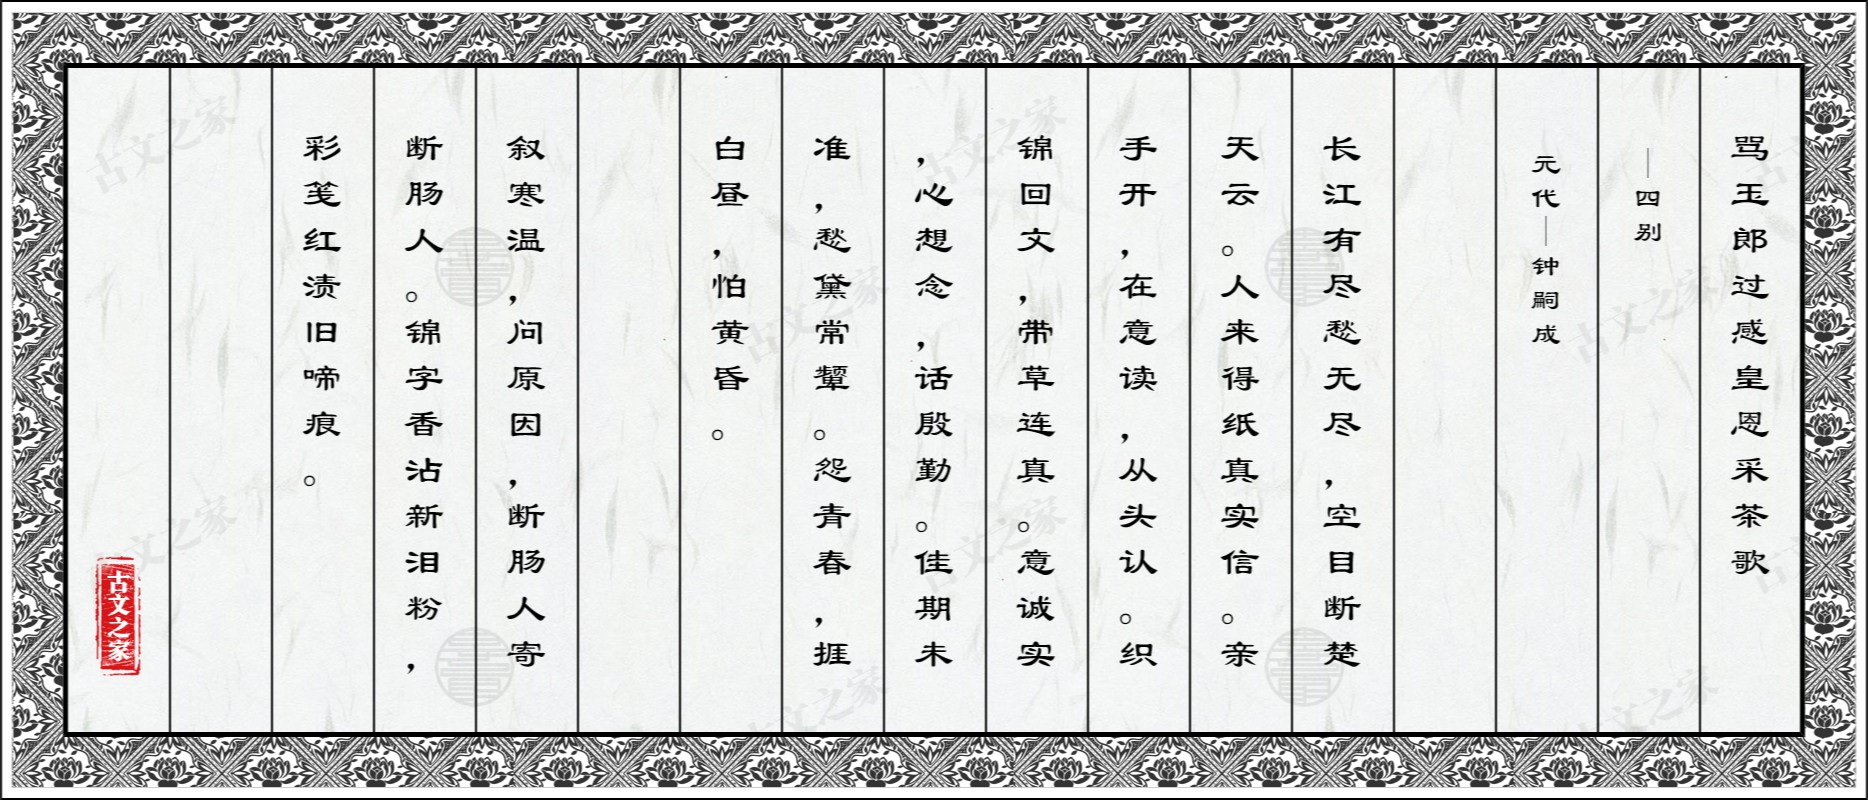 骂玉郎过感皇恩采茶歌
—四别
元代—钟嗣成
长江有尽愁无尽，空目断楚
天云。人来得纸真实信。亲
手开，在意读，从头认。织
锦回文，带草连真。意诚实
，心想念，话殷勤。佳期未
准，愁黛常颦。怨青春，捱
白昼，怕黄昏。
叙寒温，问原因，断肠人寄
断肠人。锦字香沾新泪粉，
彩笺红渍旧啼痕。
古文之家